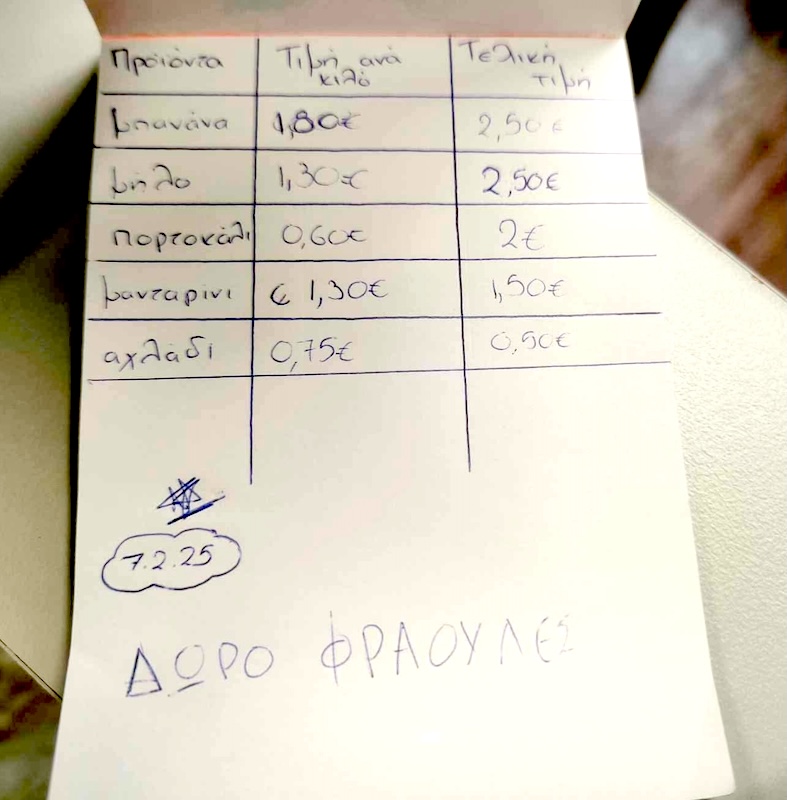 Προϊόντα Τιμή ανά κιλό Τελική τιμή
μπανάνα 1,80€ 2,50€
μήλο 1,30€ 2,50€
πορτοκάλι 0,60€ 2€
μανταρίνι € 1,30€ 1,50€
αχλάδι 0,75€ 0,50€
7.2.25
ΔΩΡΟ ΦΡΑΟΥΛΕΣ